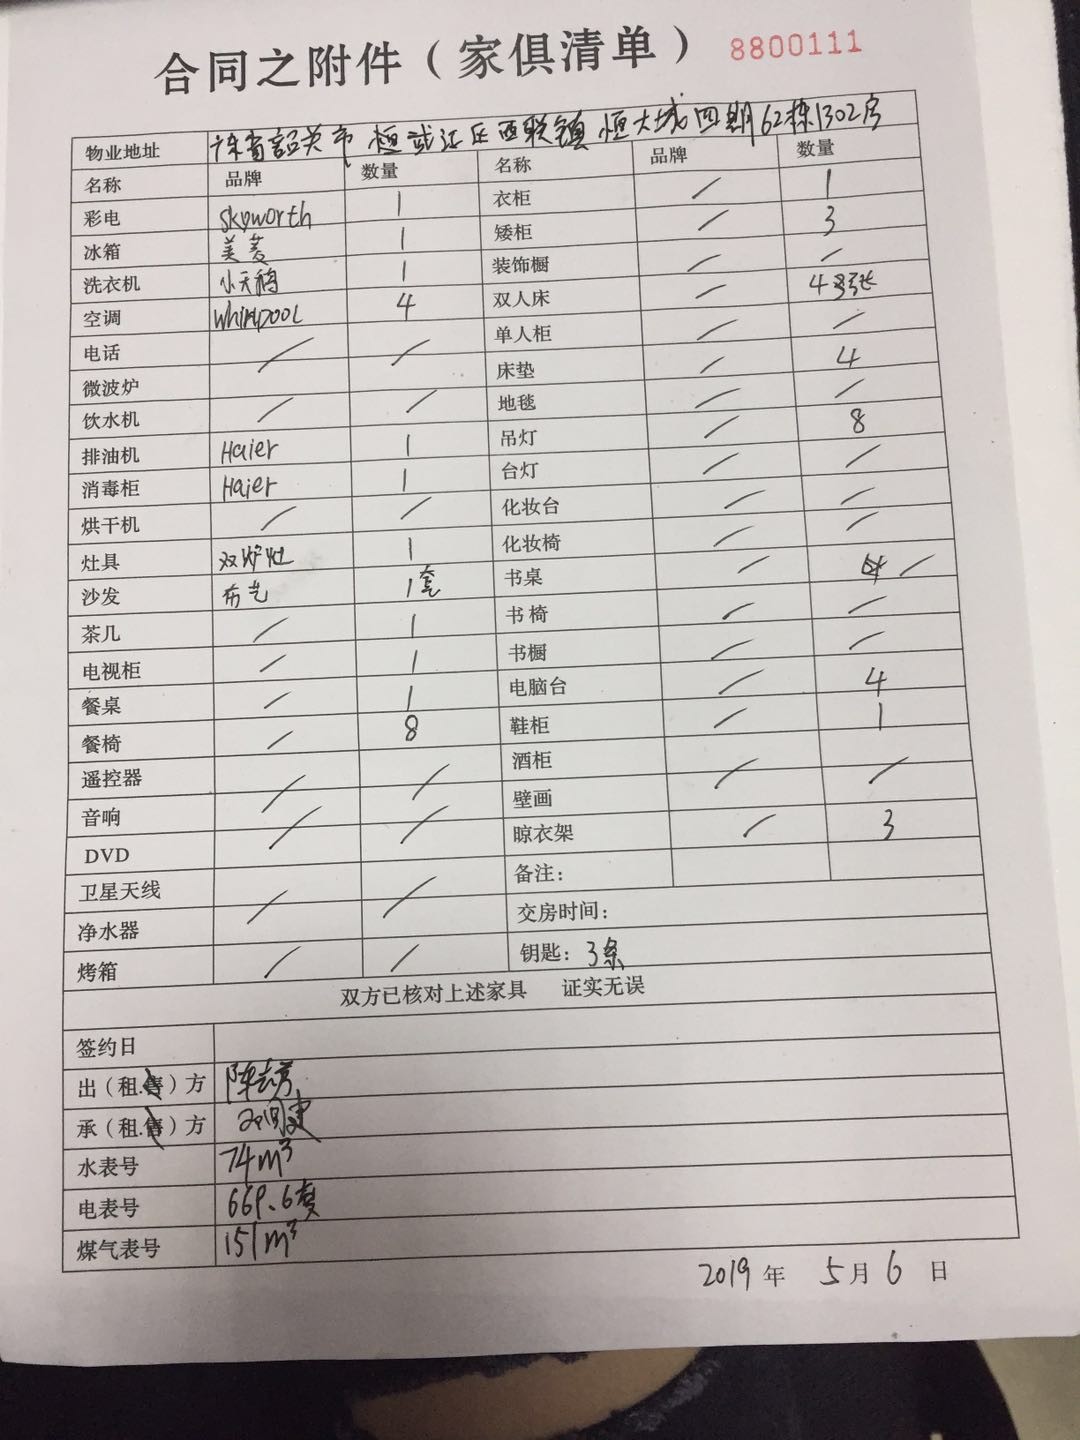 合同之附件（家俱清单） 8800111
物业地址 省韶关市 武江区西联镇 恒大城四期62栋1302房
名称 品牌 数量 名称 品牌 数量
彩电 Skyworth 1 衣柜 / 1
冰箱 美菱 1 矮柜 / 3
洗衣机 小天鹅 1 装饰橱 / /
空调 Whirlpool 4 双人床 / 4张
电话 / / 单人柜 / /
微波炉 床垫 / 4
饮水机 / / 地毯 / /
排油机 Haier 1 吊灯 / 8
消毒柜 Haier 1 台灯 / /
烘干机 / / 化妆台 / /
灶具 双炉灶 1 化妆椅 / /
沙发 布艺 1套 书桌 / /
茶几 / 1 书椅 / /
电视柜 / 1 书橱 / /
餐桌 / 1 电脑台 / 4
餐椅 / 8 鞋柜 / 1
遥控器 / / 酒柜 / /
音响 / / 壁画
DVD 晾衣架 / 3
卫星天线 / / 备注：
净水器 交房时间：
烤箱 / / 钥匙：3条
双方已核对上述家具 证实无误
签约日
出（租.售）方 陈
承（租.售）方
水表号 74m³
电表号 669.6度
煤气表号 151m³
2019年 5月6日